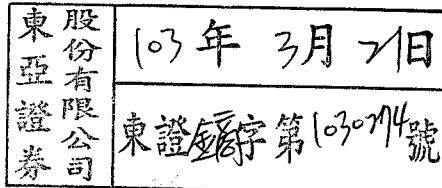 東亞證券
股份有限公司
103年 3月 21日
東證鏑字第1030274號